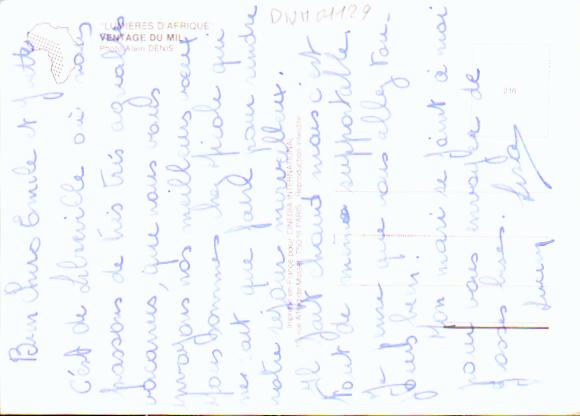 "LUMIERES D'AFRIQUE"
VENTAGE DU MIL
Photo Alain DENIS
DWM01129
216
Imprimé en France pour CINEDIA INTERNATIONAL
rue Alfred de Musset, 75016 PARIS Reproduction interdite
Bien chers Emile et
C'est de Libreville où nous
passons de très très agréables
vacances, que nous vous
envoyons nos meilleurs vœux
Nous sommes chez Nicole qui
ne sait que faire pour rendre
notre séjour merveilleux.
Il fait chaud mais c'est
tout de même supportable.
J'espère que vous allez tou-
jours bien.
Mon mari se joint à moi
pour vous envoyer de
grosses bises.